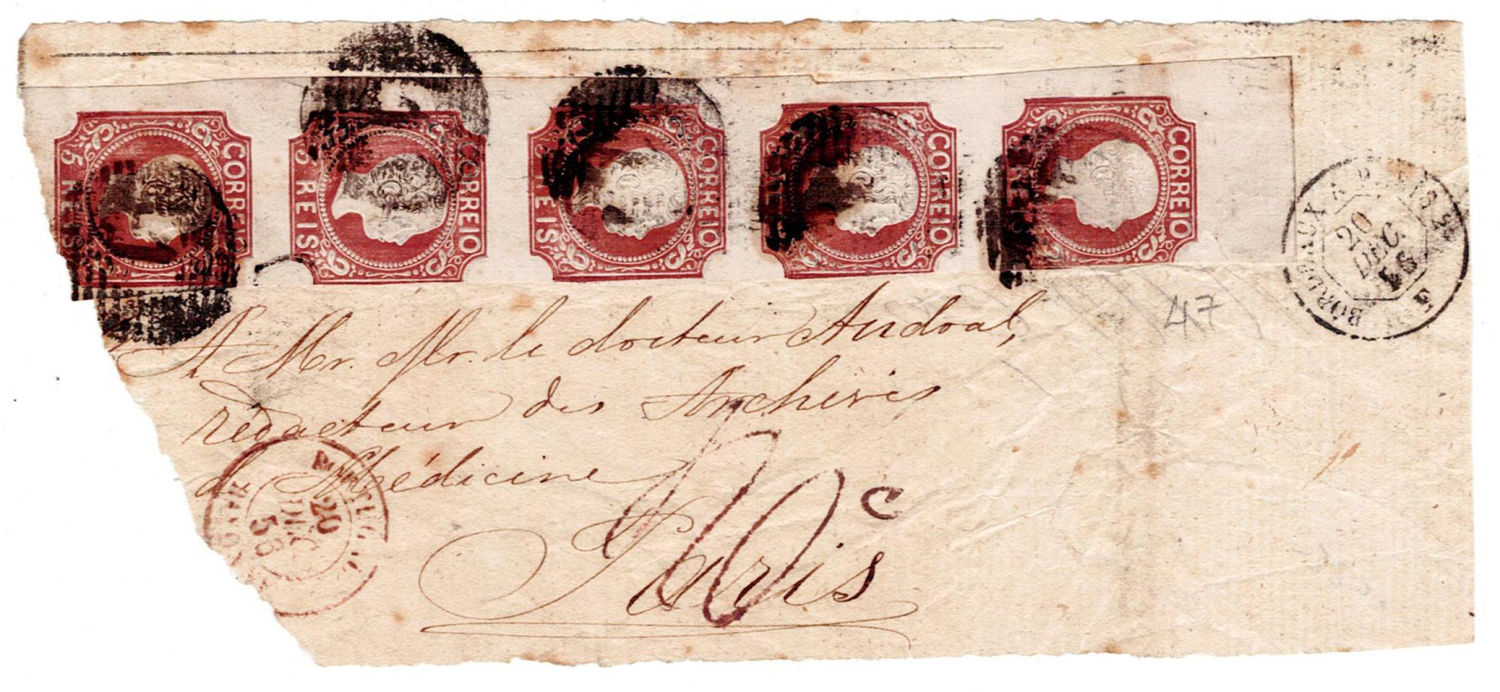 5 REIS CORREIO
5 REIS CORREIO
5 REIS CORREIO
CORREIO
CORREIO
BORDEAUX A
20
DEC
58
47
A Mr. Mr. le docteur Audoal,
rédacteur des Archives
de Médicine
Paris
20
58